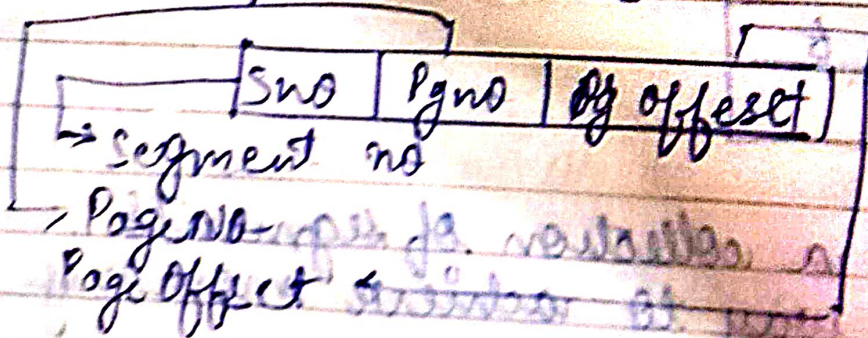 Sno Pgno Pg offeset
Segment no
Page No-
Page Offset